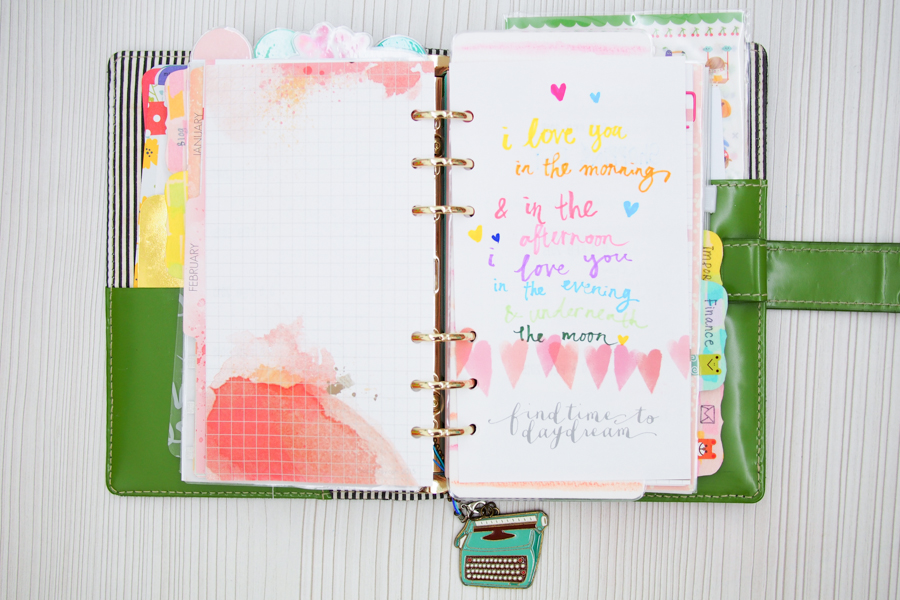 JANUARY
FEBRUARY
Blog
i love you
in the morning,
& in the
afternoon
i love you
in the evening
& underneath
the moon
find time to
daydream
Finance